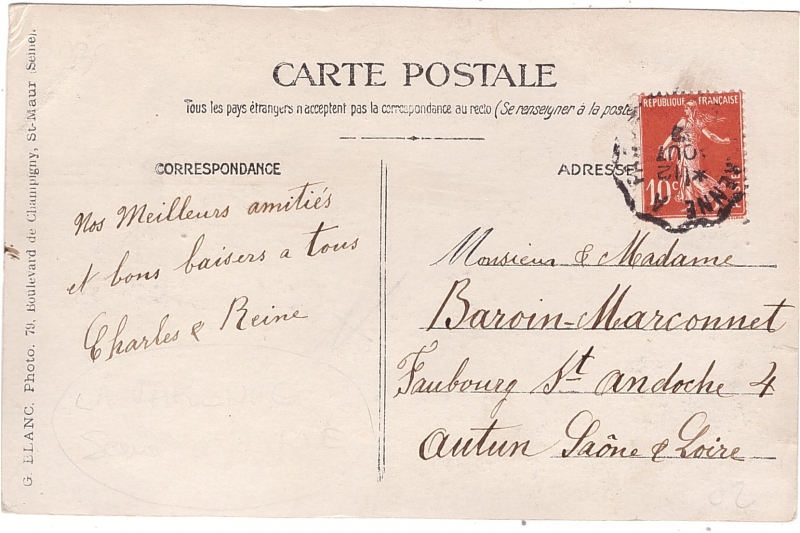 CARTE POSTALE
Tous les pays étrangers n'acceptent pas la correspondance au recto (Se renseigner à la poste
CORRESPONDANCE
Nos Meilleurs amitiés
et bons baisers a tous
Charles & Reine
ADRESSE
REPUBLIQUE FRANÇAISE
10c
Monsieur & Madame
Baroin-Marconnet
Faubourg St andoche 4
autun Saône & Loire
G. BLANC, Photo. 79, Boulevard de Champigny, St-Maur (Seine).